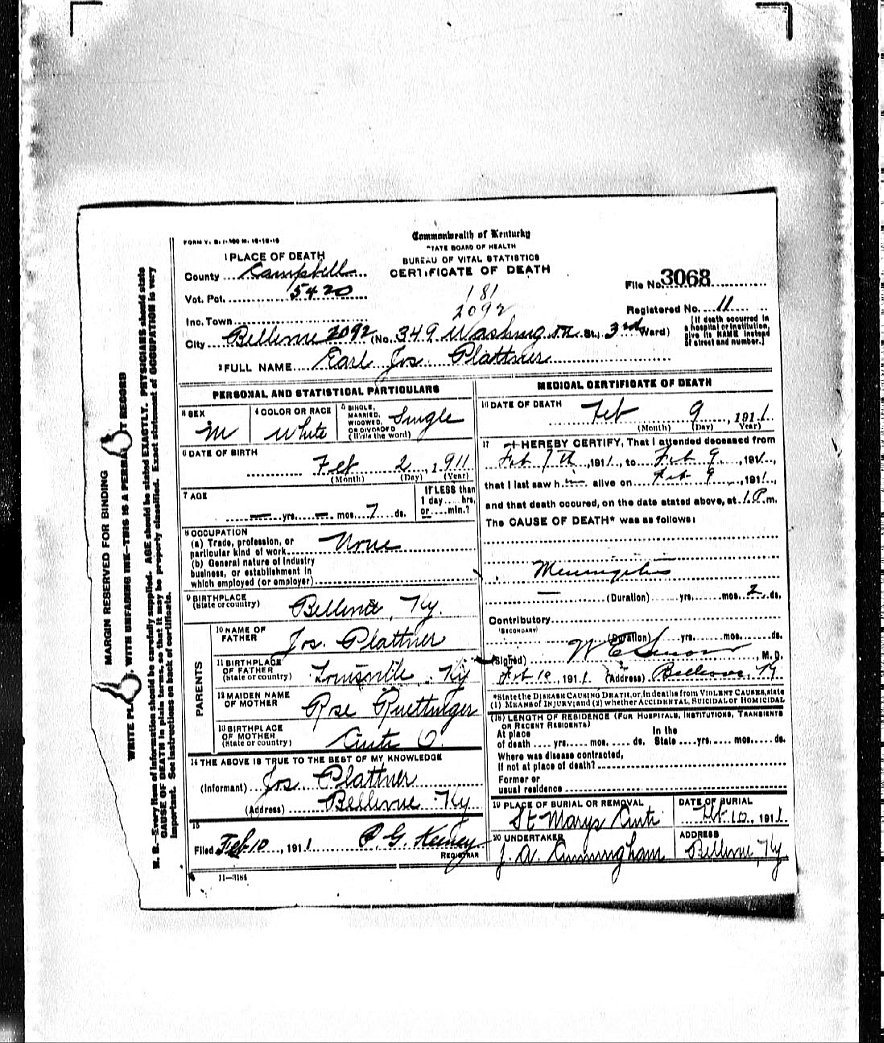 FORM V. S. 
Commonwealth of Kentucky
STATE BOARD OF HEALTH
BUREAU OF VITAL STATISTICS
CERTIFICATE OF DEATH
1 PLACE OF DEATH
County Campbell
Vot. Pct. 5420
181
2092
File No. 3068
Inc. Town
Registered No. 11
City Bellevue 2092 (No. 349 Washington St.; 3rd Ward)
[If death occurred in a hospital or institution, give its NAME instead of street and number.]
2 FULL NAME Earl Jos. Plattner
PERSONAL AND STATISTICAL PARTICULARS
3 SEX M
4 COLOR OR RACE White
5 SINGLE, MARRIED, WIDOWED, OR DIVORCED (Write the word) Single
6 DATE OF BIRTH
Feb 2, 1911
(Month) (Day) (Year)
7 AGE
— yrs. — mos. 7 ds.
IF LESS than 1 day ... hrs. or ... min.?
8 OCCUPATION
(a) Trade, profession, or particular kind of work None
(b) General nature of industry business, or establishment in which employed (or employer)
9 BIRTHPLACE
(State or country) Bellevue, Ky.
PARENTS
10 NAME OF FATHER Jos. Plattner
11 BIRTHPLACE OF FATHER (State or country) Louisville Ky
12 MAIDEN NAME OF MOTHER Rose Ruettinger
13 BIRTHPLACE OF MOTHER (State or country) Cinti O.
14 THE ABOVE IS TRUE TO THE BEST OF MY KNOWLEDGE
(Informant) Jos. Plattner
(Address) Bellevue Ky
15
Filed Feb 10, 1911 P. G. Keeney
REGISTRAR
11—3184
MEDICAL CERTIFICATE OF DEATH
16 DATE OF DEATH Feb 9, 1911
(Month) (Day) (Year)
17 I HEREBY CERTIFY, That I attended deceased from
Feb 7th, 1911, to Feb 9, 1911,
that I last saw him alive on Feb 9, 1911,
and that death occurred, on the date stated above, at 1 P.m.
The CAUSE OF DEATH* was as follows:
Meningitis
— (Duration) yrs. mos. 2 ds.
Contributory
(SECONDARY)
(Duration) yrs. mos. ds.
(Signed) W E , M. D.
Feb 10, 1911 (Address) Bellevue, Ky
*State the DISEASE CAUSING DEATH, or, in deaths from VIOLENT CAUSES, state
(1) MEANS of INJURY; and (2) whether ACCIDENTAL, SUICIDAL or HOMICIDAL
(18) LENGTH OF RESIDENCE (FOR HOSPITALS, INSTITUTIONS, TRANSIENTS
OR RECENT RESIDENTS)
At place of death yrs. mos. ds. In the State yrs. mos. ds.
Where was disease contracted,
if not at place of death?
Former or
usual residence
19 PLACE OF BURIAL OR REMOVAL St Marys Cinti
DATE OF BURIAL Feb 10, 1911
20 UNDERTAKER J. A. Cunningham
ADDRESS Bellevue, Ky
MARGIN RESERVED FOR BINDING
WRITE PL WITH UNFADING INK—THIS IS A PERMA T RECORD
N. B.—Every item of information should be carefully supplied. AGE should be stated EXACTLY. PHYSICIANS should state
CAUSE OF DEATH in plain terms, so that it may be properly classified. Exact statement of OCCUPATION is very
important. See instructions on back of certificate.